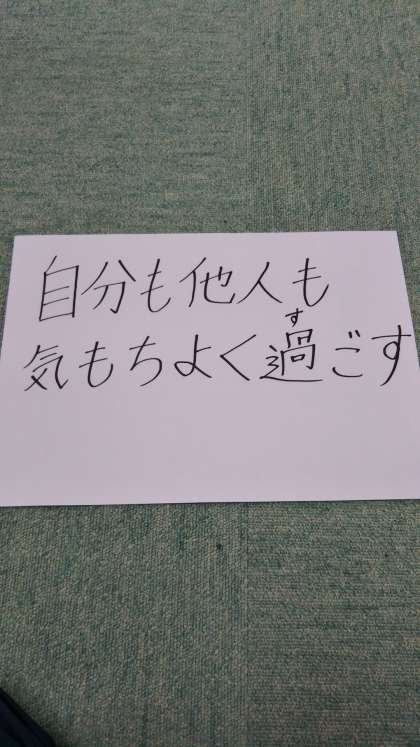 自分も他人も
す
気もちよく過ごす